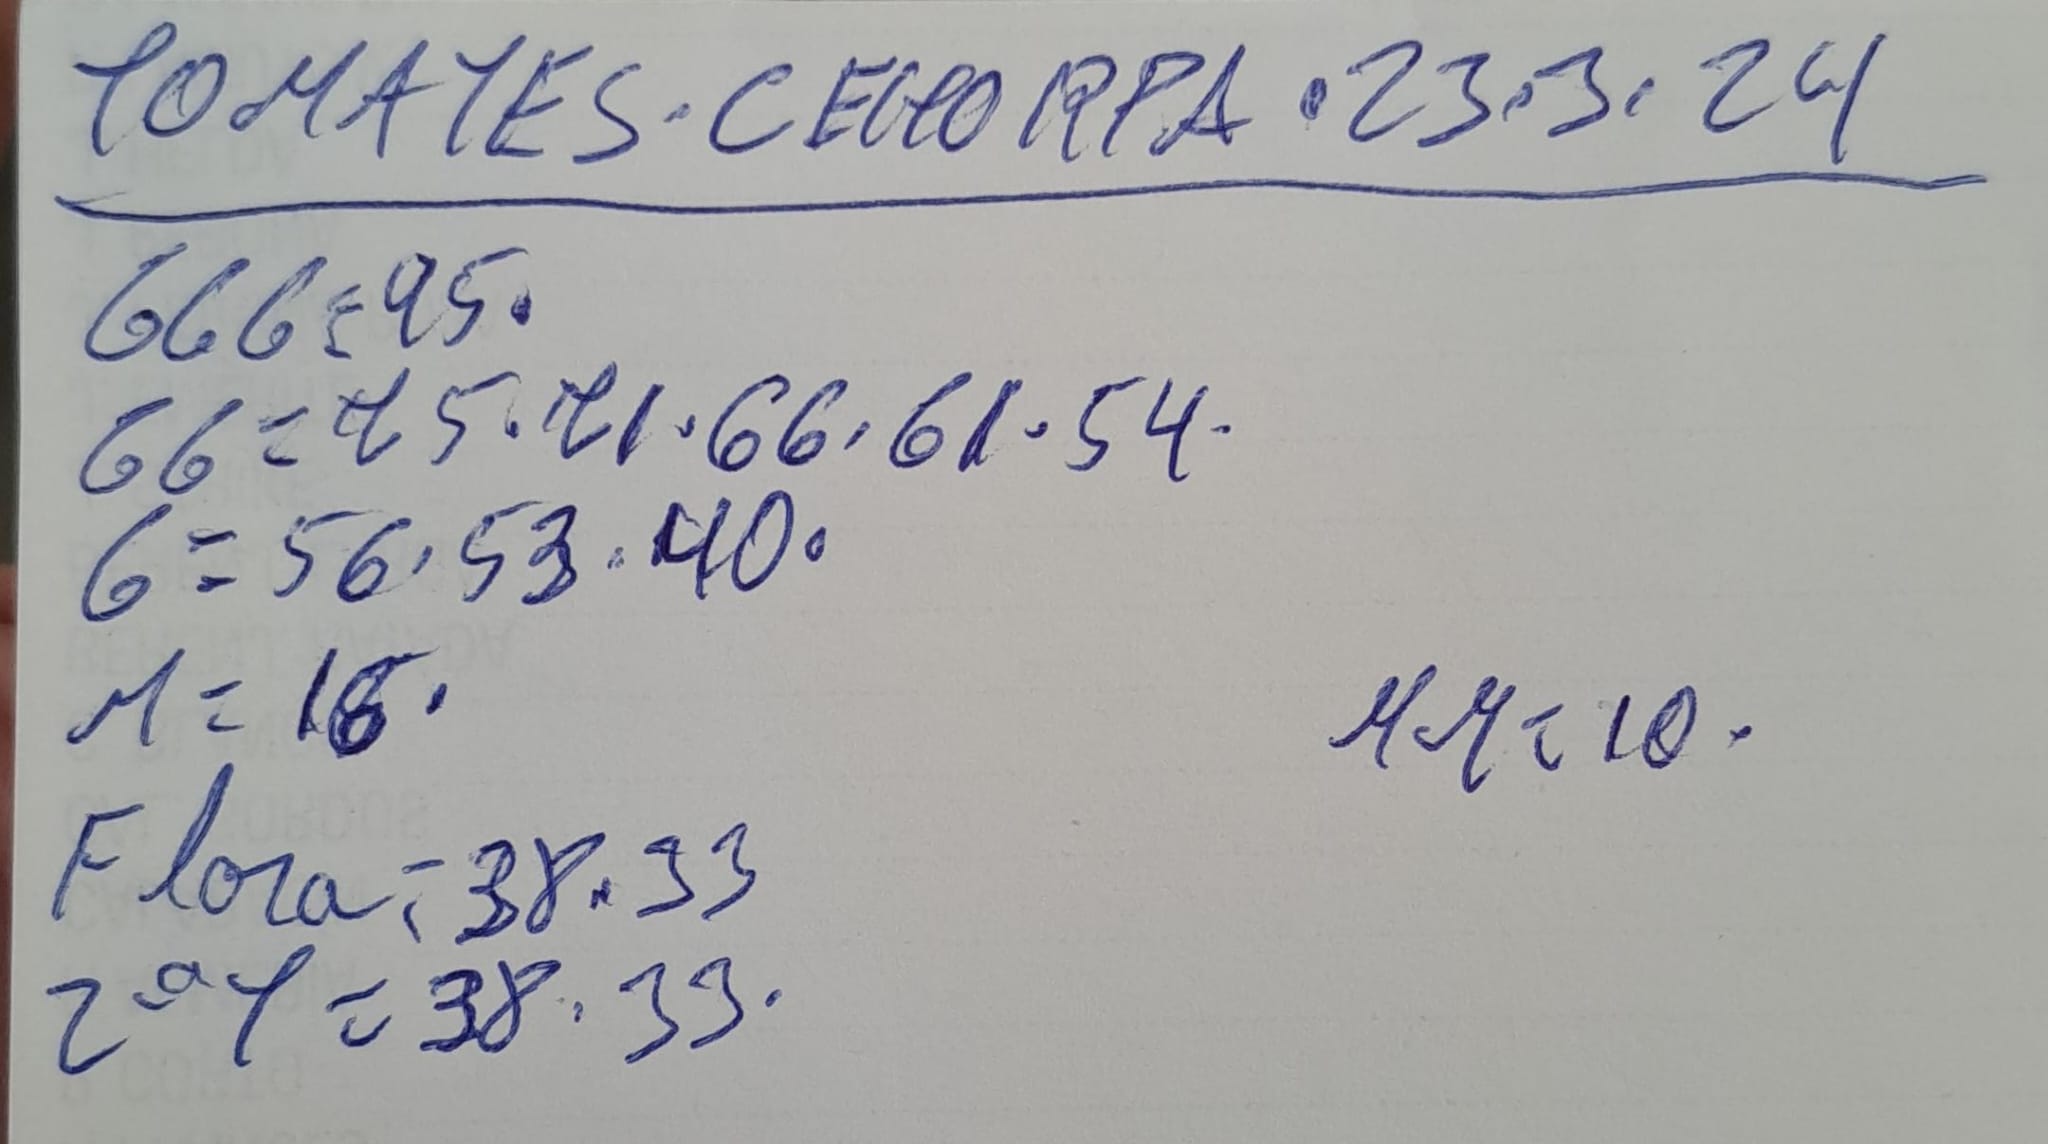 TOMATES·CEHORPA·23·3·24
GGG=95.
GG=75·71·66·61·54.
G=56·53·40.
M=18. MM=10.
Flora=38·33
2ªY=38·33.